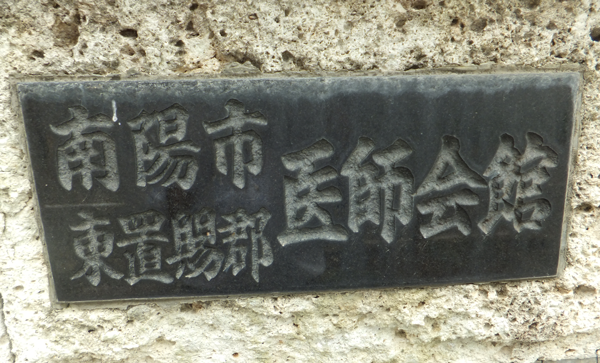 南陽市
東置賜郡
医師会館